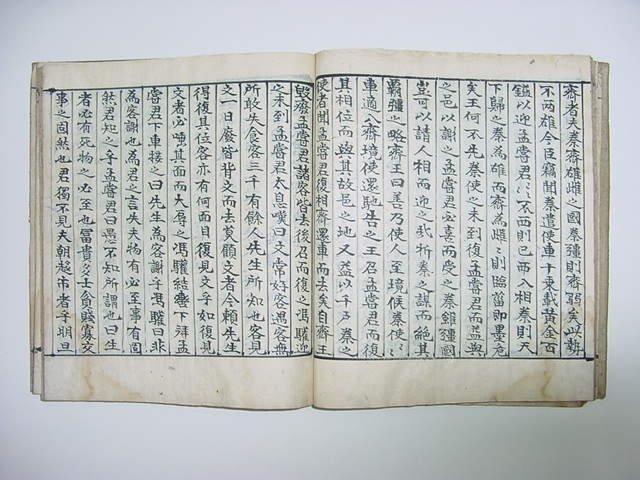 齊者夫秦齊雄雌之國秦彊則齊弱矣此勢
不两雄今臣竊聞秦遣使車十乘載黃金百
鎰以迎孟嘗君〻〻〻不西則已西入相秦則天
下歸之秦為雄而齊為雌〻則臨淄即墨危
矣王何不先秦使之未到復孟嘗君而益與
之邑以謝之孟嘗君必喜而受之秦雖彊國
豈可以請人相而迎之㦲折秦之謀而絕其
霸彊之略齊王曰善乃使人至境候秦使〻
車適入齊境使還馳告之王召孟嘗君而復
其相位而與其故邑之地又益以千戶秦之
使者聞孟嘗君復相齊還車而去矣自齊王
毀廢孟嘗君諸客皆去後召而復之馮驩迎
之未到孟嘗君太息嘆曰文常好客遇客無
所敢失食客三千有餘人先生所知也客見
文一日廢皆背文而去莫顧文者今賴先生
得復其位客亦有何面目復見文乎如復見
文者必唾其面而大辱之馮驩結轡下拜孟
嘗君下車接之曰先生為客謝乎馮驩曰非
為客謝也為君之言失夫物有必至事有固
然君知之乎孟嘗君曰愚不知所謂也曰生
者必有死物之必至也冨貴多士貧賤寡交
事之固然也君獨不見夫朝趍市者乎明旦